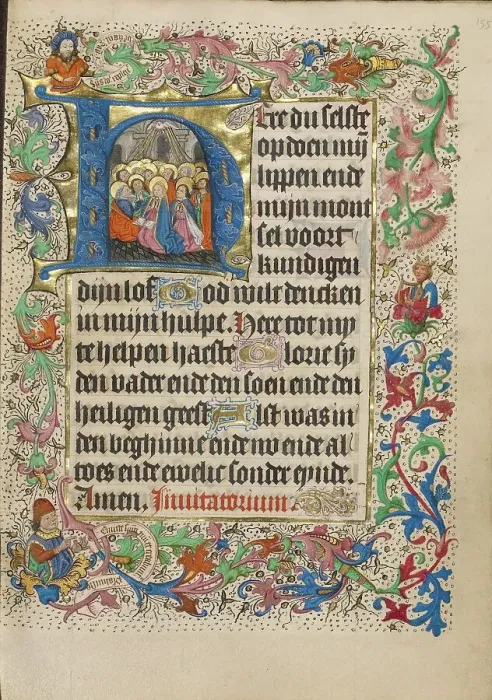 Here du selste
op doen mijn
lippen ende
mijn mont
sel voort
kundigen
dijn lof God wilt dencken
in mijn hulpe. Here tot my
te helpen haeste Glorie sy
den vader ende den soen ende den
heiligen geest Alst was in
den beghinne ende nv ende al
toes ende ewelic sonder eynde.
Amen. Inuitatorium.